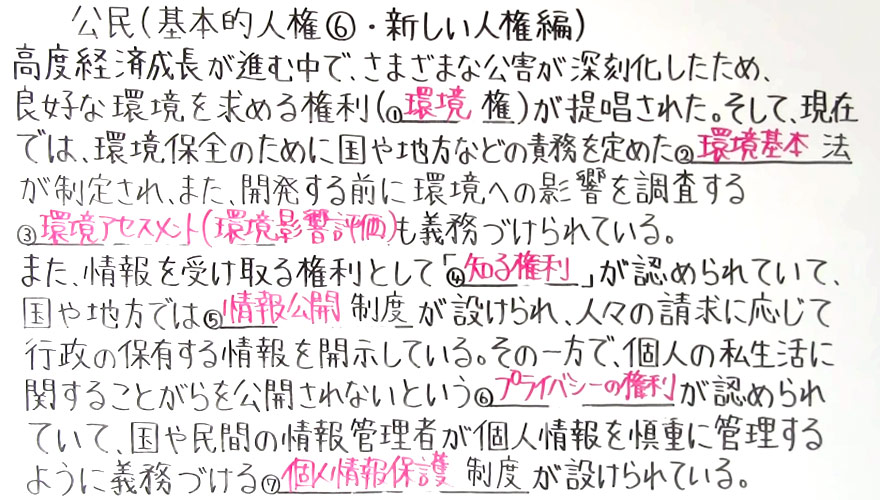 公民(基本的人権⑥・新しい人権編)
高度経済成長が進む中で、さまざまな公害が深刻化したため、
良好な環境を求める権利(①環境 権)が提唱された。そして、現在
では、環境保全のために国や地方などの責務を定めた②環境基本 法
が制定され、また、開発する前に環境への影響を調査する
③環境アセスメント(環境影響評価)も義務づけられている。
また、情報を受け取る権利として「④知る権利 」が認められていて、
国や地方では⑤情報公開 制度 が設けられ、人々の請求に応じて
行政の保有する情報を開示している。その一方で、個人の私生活に
関することがらを公開されないという⑥プライバシーの権利が認められ
ていて、国や民間の情報管理者が個人情報を慎重に管理する
ように義務づける⑦個人情報保護 制度 が設けられている。